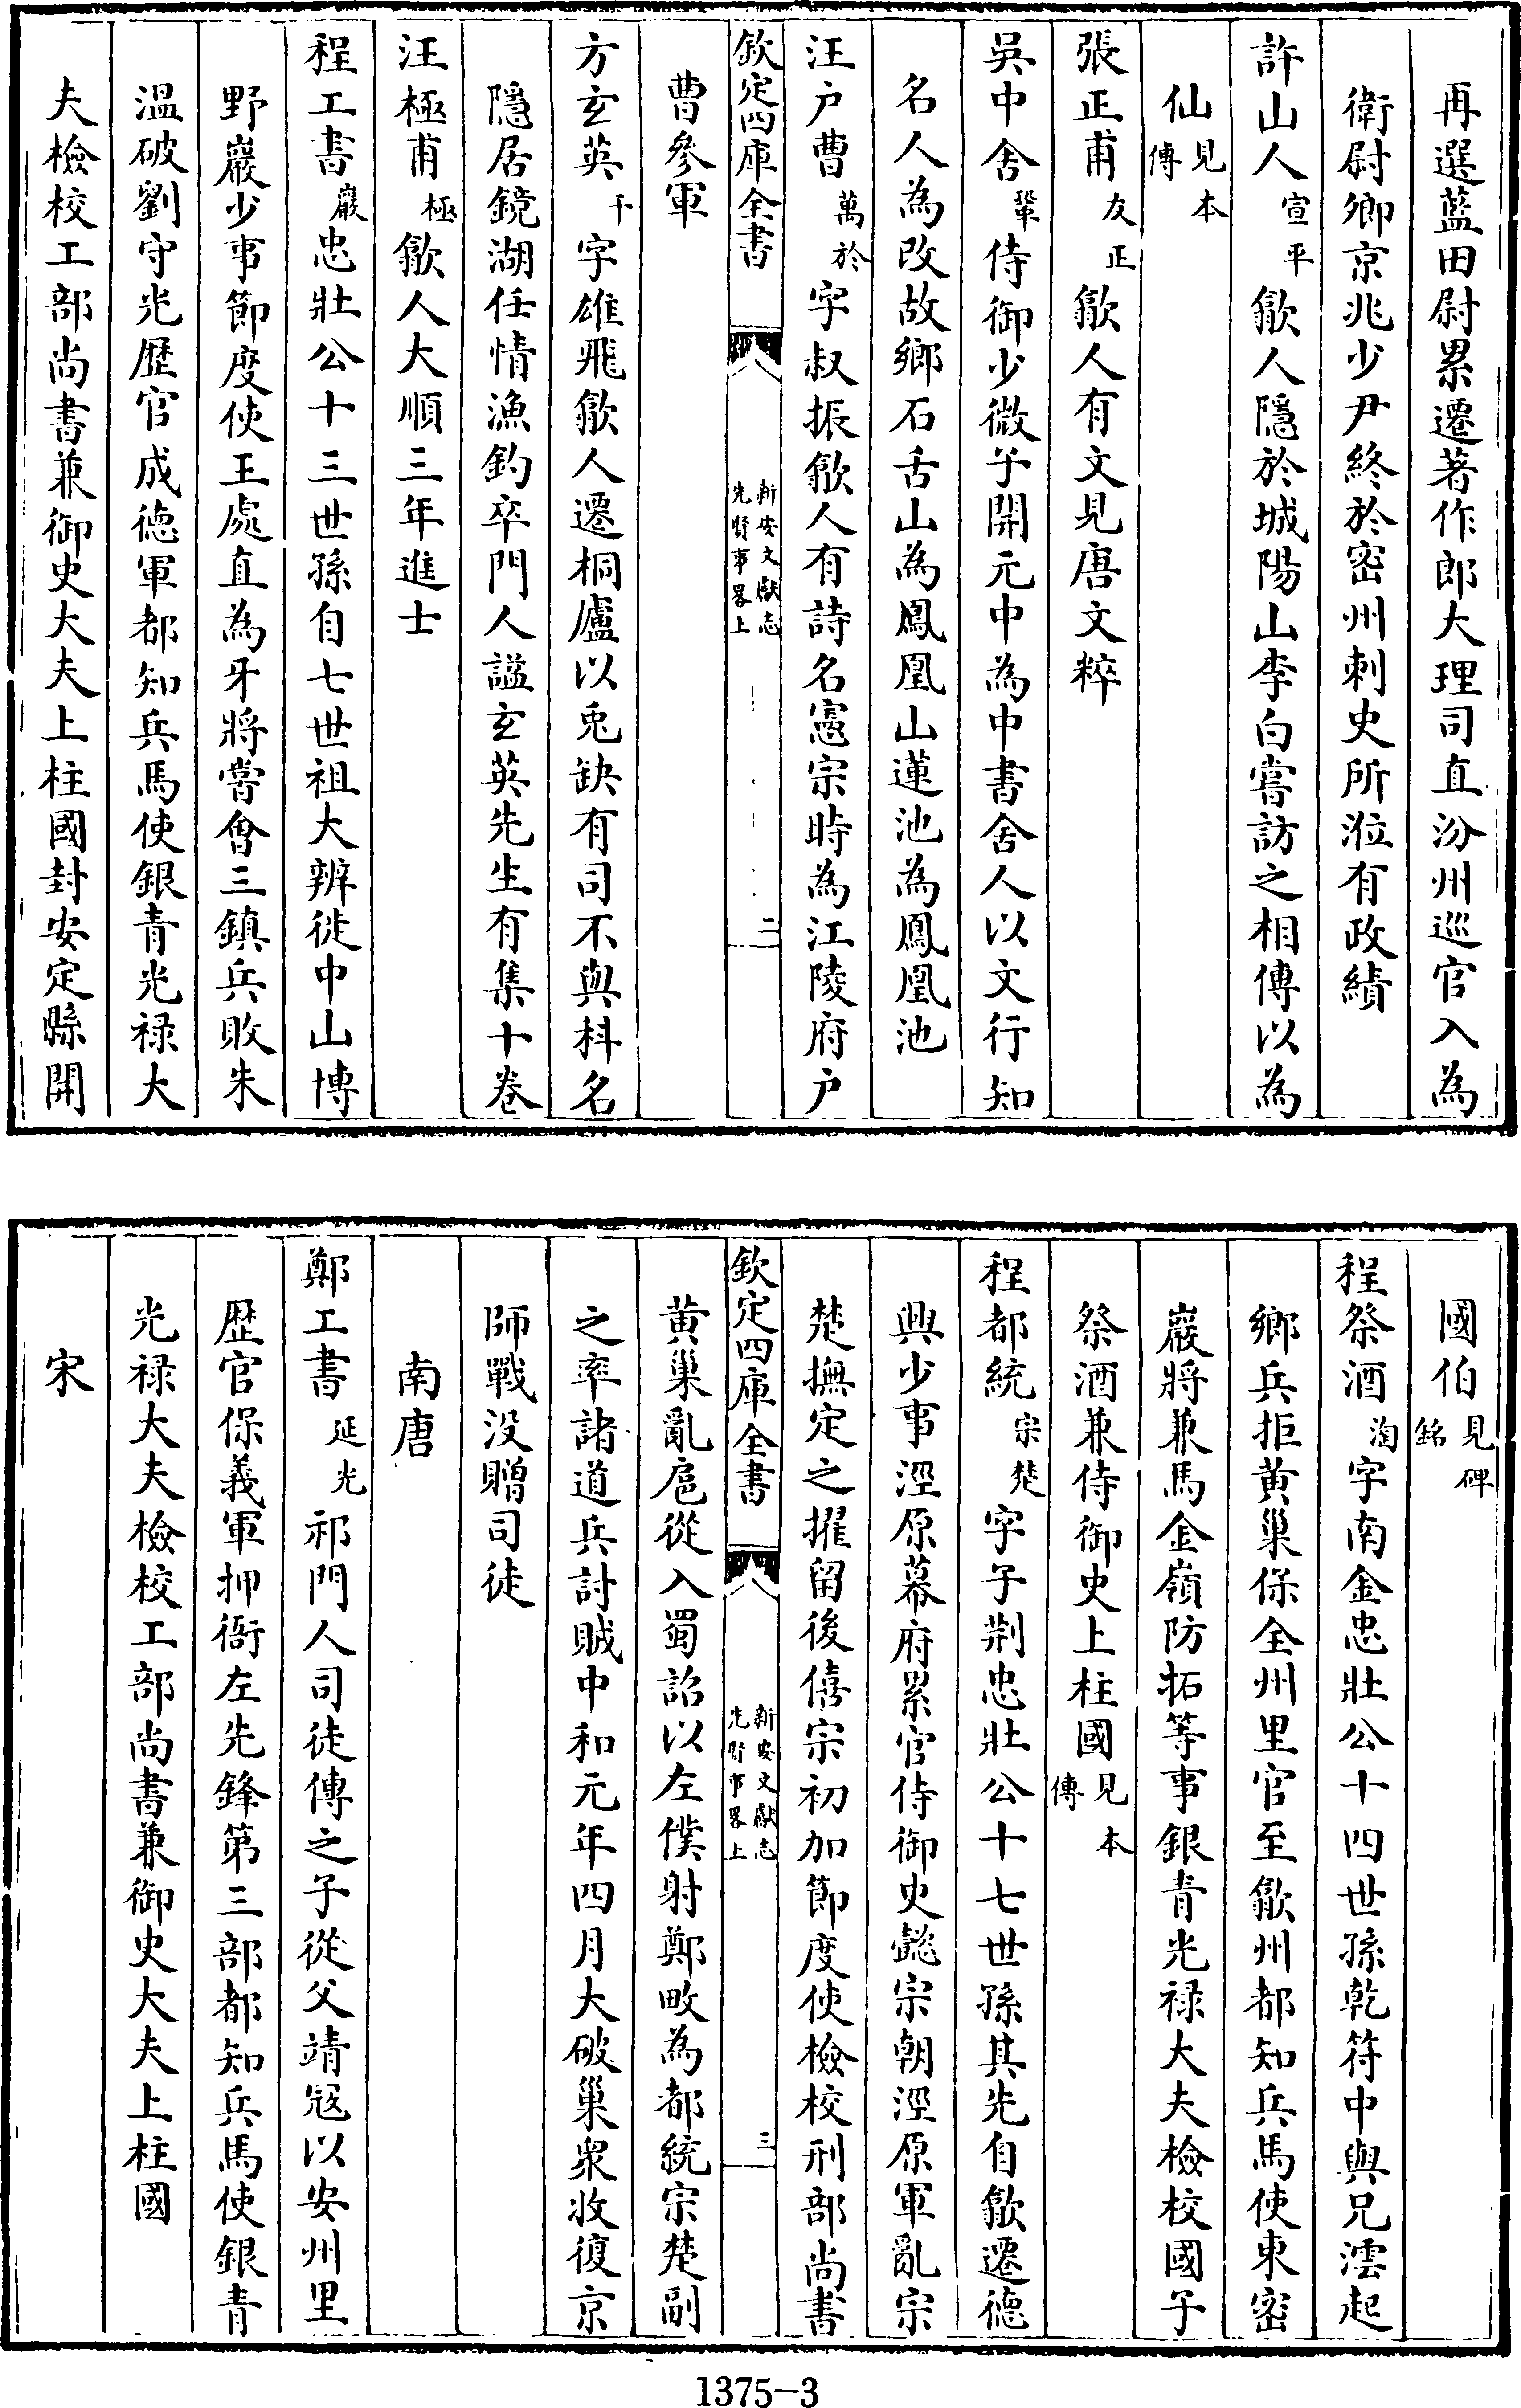 再選藍田尉累遷著作郎大理司直汾州巡官入為
衛尉卿京兆少尹終於密州刺史所涖有政績
許山人宣平歙人隱於城陽山李白嘗訪之相傳以為
仙見本傳
張正甫友正歙人有文見唐文粹
吳中舍鞏侍御少微子開元中為中書舍人以文行知
名人為改故鄉石舌山為鳳凰山蓮池為鳳凰池
汪户曹萬於字叔振歙人有詩名憲宗時為江陵府户
欽定四庫全書
新安文獻志
先賢事畧上
二
曹參軍
方玄英干字雄飛歙人遷桐廬以兎缺有司不與科名
隱居鏡湖任情漁釣卒門人謚玄英先生有集十卷
汪極甫極歙人大順三年進士
程工書巖忠壯公十三世孫自七世祖大辨徙中山博
野巖少事節度使王處直為牙將嘗會三鎮兵敗朱
溫破劉守光歷官成德軍都知兵馬使銀青光祿大
夫檢校工部尚書兼御史大夫上柱國封安定縣開
國伯見碑銘
程祭酒淘字南金忠壯公十四世孫乾符中與兄澐起
鄉兵拒黄巢保全州里官至歙州都知兵馬使東密
巖將兼馬金嶺防拓等事銀青光祿大夫檢校國子
祭酒兼侍御史上柱國見本傳
程都統宗楚字子荆忠壯公十七世孫其先自歙遷德
興少事涇原幕府累官侍御史懿宗朝涇原軍亂宗
楚撫定之擢留後僖宗初加節度使檢校刑部尚書
欽定四庫全書
新安文獻志
先賢事畧上
三
黄巢亂扈從入蜀詔以左僕射鄭畋為都統宗楚副
之率諸道兵討賊中和元年四月大破巢衆收復京
師戰没贈司徒
南唐
鄭工書延光祁門人司徒傳之子從父靖冦以安州里
歷官保義軍押衙左先鋒第三部都知兵馬使銀青
光祿大夫檢校工部尚書兼御史大夫上柱國
宋
1375-3